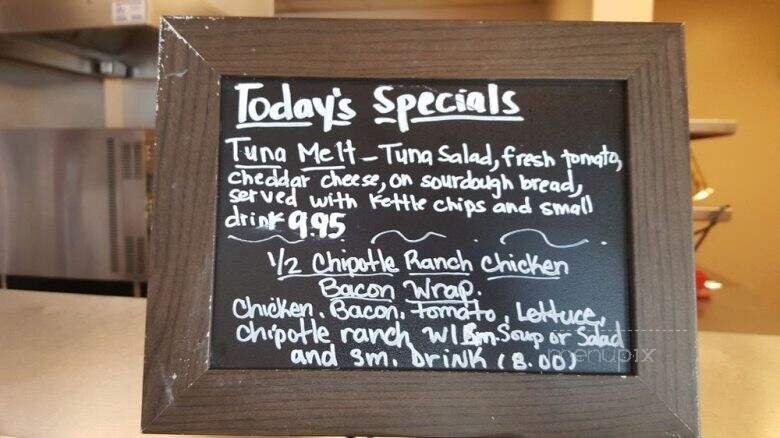 Today's Specials
Tuna Melt - Tuna Salad, fresh tomato,
cheddar cheese, on sourdough bread,
served with Kettle chips and small
drink 9.95
1/2 Chipotle Ranch Chicken
Bacon Wrap.
Chicken. Bacon. tomato, Lettuce,
chipotle ranch w/ Sm. Soup or Salad
and sm. Drink (8.00)
menupix